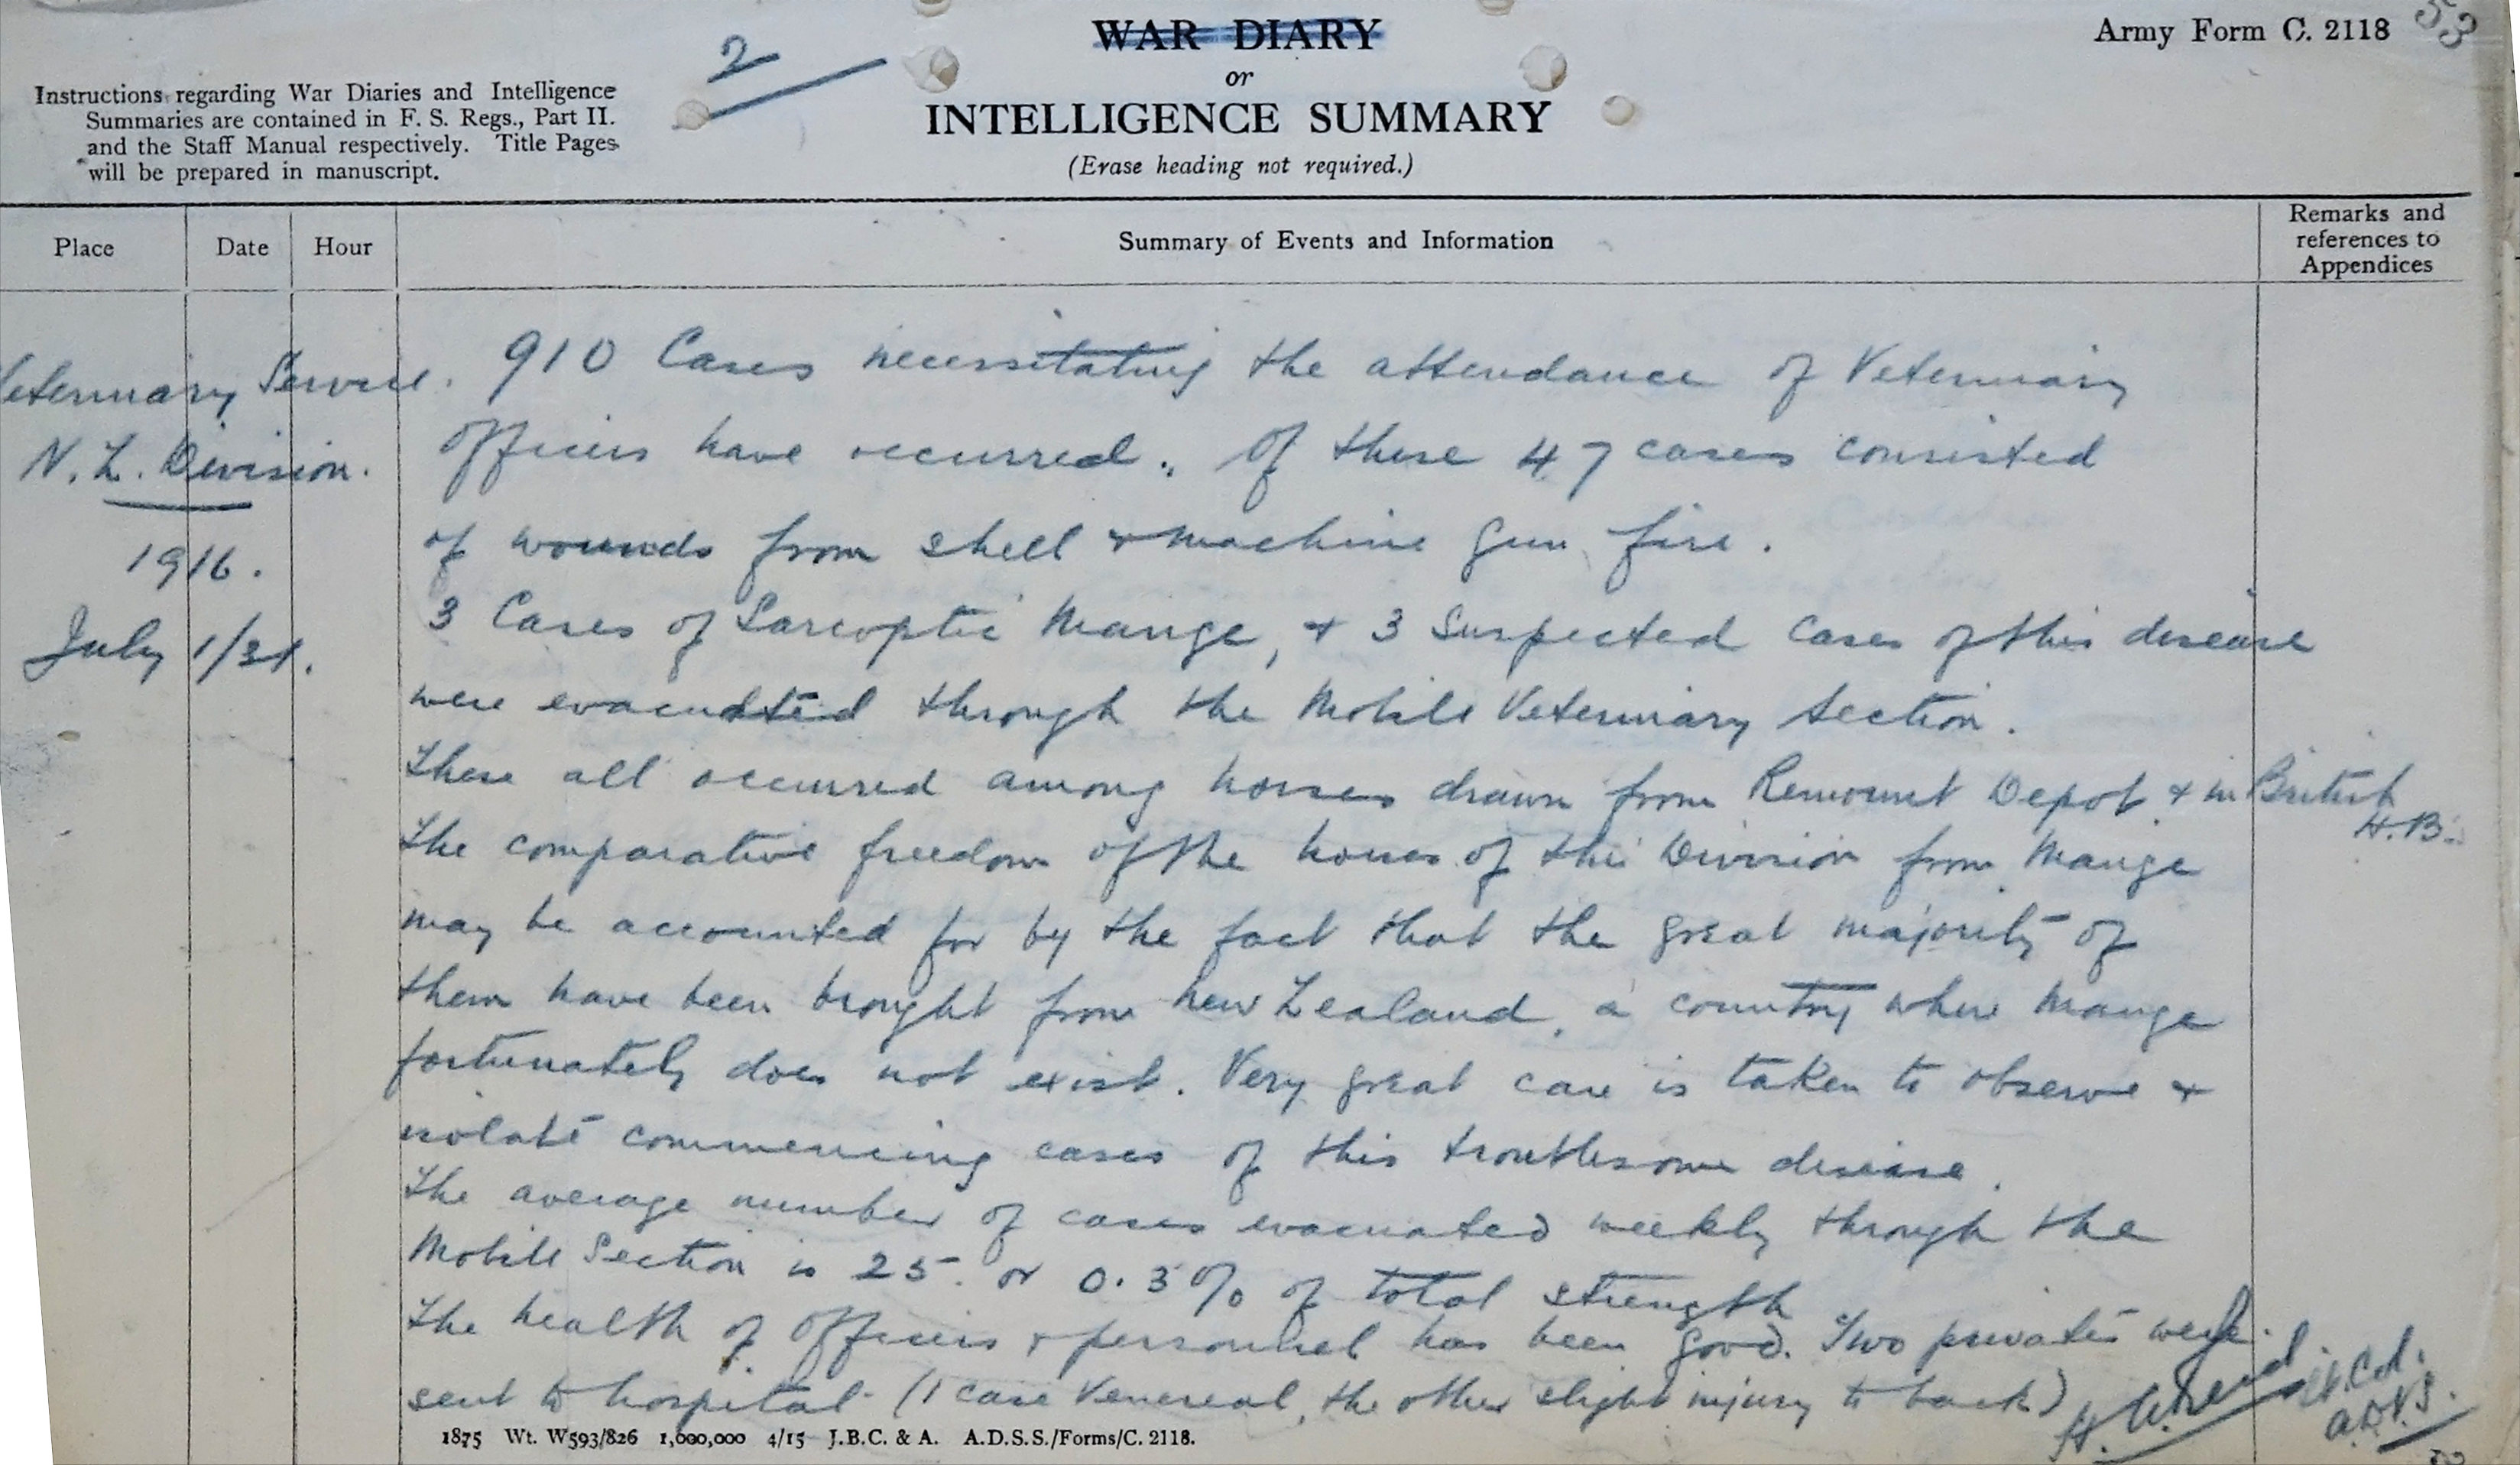 2
WAR DIARY
or
INTELLIGENCE SUMMARY
(Erase heading not required.)
Army Form C. 2118
53
Instructions regarding War Diaries and Intelligence
Summaries are contained in F. S. Regs., Part II.
and the Staff Manual respectively. Title Pages
will be prepared in manuscript.
Place
Date
Hour
Summary of Events and Information
Remarks and
references to
Appendices
Veterinary Service.
N. Z. Division.
1916.
July 1/31.
910 Cases necessitating the attendance of Veterinary
Officers have occurred. Of these 47 cases consisted
of wounds from shell & machine gun fire.
3 Cases of Sarcoptic Mange, & 3 Suspected Cases of this disease
were evacuated through the Mobile Veterinary Section.
These all occurred among horses drawn from Remount Depot & in British
H.B.
The comparative freedom of the horses of this Division from Mange
may be accounted for by the fact that the great majority of
them have been brought from New Zealand, a country where Mange
fortunately does not exist. Very great care is taken to observe &
isolate commencing cases of this troublesome disease.
The average number of cases evacuated weekly through the
Mobile Section is 25. or 0.3% of total strength
The health of Officers & personnel has been good. Two privates were
sent to hospital (1 case Venereal, the other slight injury to back)
A.D.V.S.
1875 Wt. W593/826 1,000,000 4/15 J.B.C. & A. A.D.S.S./Forms/C. 2118.